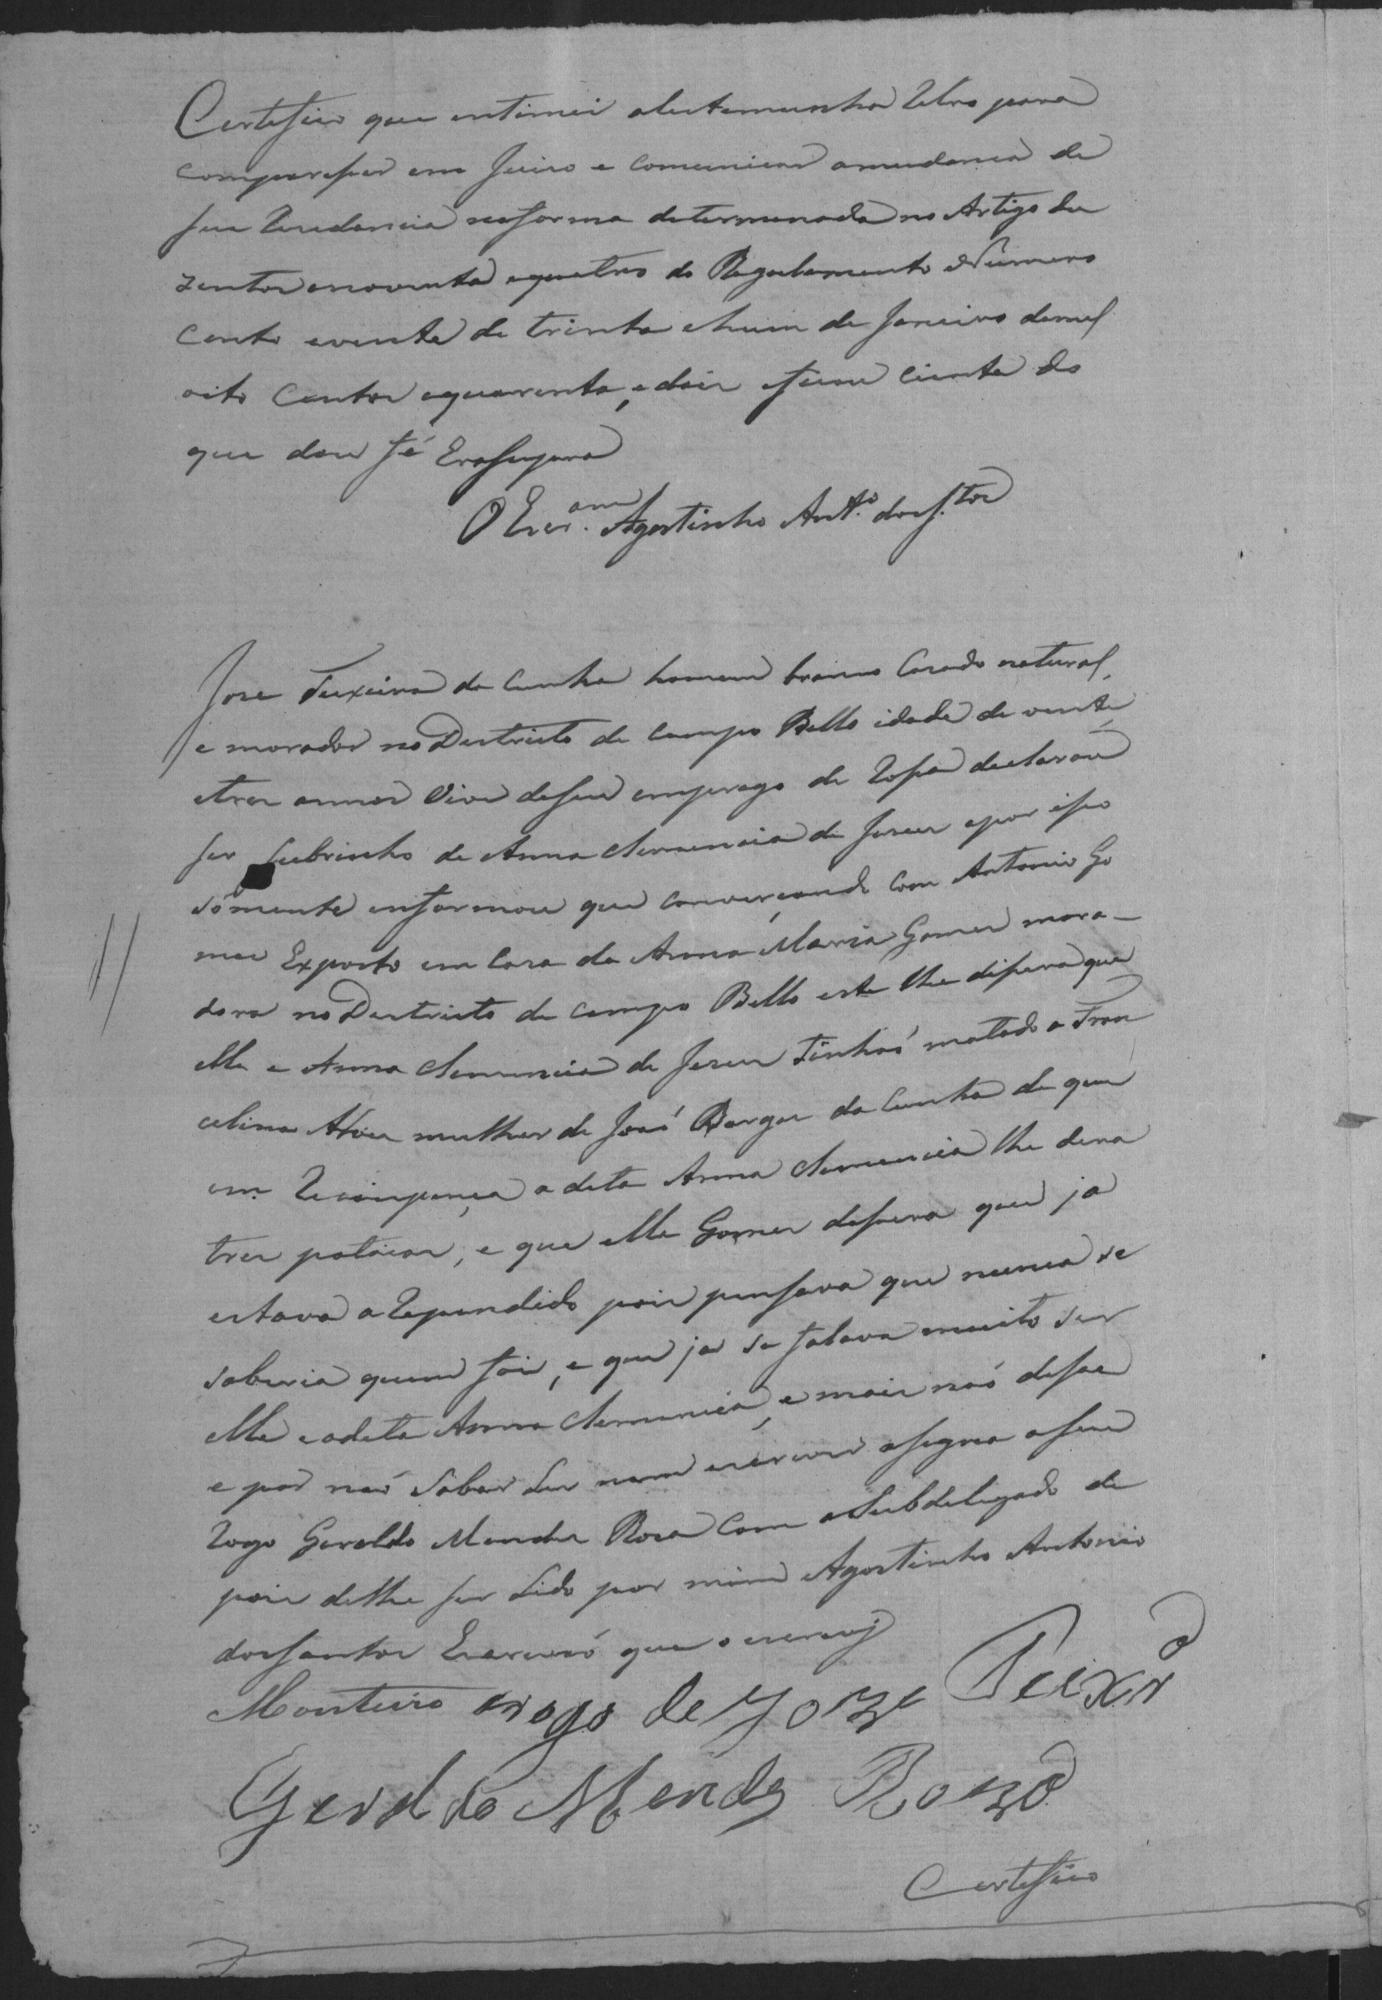 Certefico que entimei atestemunha Retro para
comparesser em Juizo e comunicar amudanca de
sua Rezedencia naforma determenada no Artigo du
zentos enoventa equatro do Regulamento Numero
Cento evente de trinta ehum de Janeiro demil
oito Centos equarenta, edois eficou ciente do
que dou fé Erasupra
O Escr.am Agostinho Ant.o dos S.tos
Jose Teixeira da Cunha homem branco Casado natural
e morador no Destricto de Campo Bello idade de vente
etres annos Vive deseu emprego de Rossa declarou
ser Subrinho de Anna Clemencia de Jesus epor isso
sómente enformou que converçando com Antonio Go
mes Exposto em Casa de Anna Maria Gomes mora-
dora no Destricto de Campo Bello este lhe dissera que
elle e Anna Clemencia de Jesus tinhaó matado a Fran
celina Alves mulher de José Borges da Cunha de que
em Recompença a dita Anna Clemencia lhe dera
tres patacas, e que elle Gomes dissera que ja
estava aRependido pois pensava que nunca se
saberia quem foi, e que ja se falava muito ser
elle eadita Anna Clemencia, e mais naó disse
e por naó saber Ler nem escrever assigna aseu
Rogo Geraldo Mendes Rosa com oSubdelegado de
pois delhe ser Lido por mim Agostinho Antonio
dosSantos Escrivaó que o escrevj
Monteiro arogo de Joze Teixr.a
Gerldo Mendes Roza
Certefico